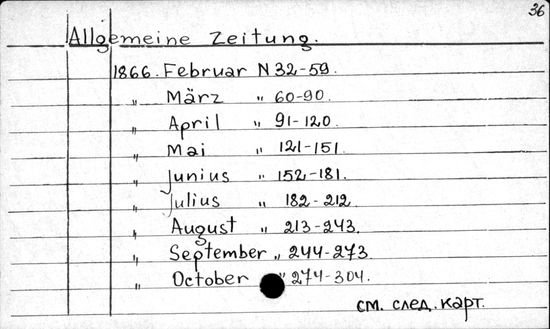 36
Allgemeine Zeitung.
1866. Februar N 32-59.
„ März „ 60-90.
„ April „ 91-120.
„ Mai „ 121-151.
„ Junius „ 152-181.
„ Julius „ 182-212.
„ August „ 213-243.
„ September „ 244-273.
„ October „ 274-304.
см. след. карт.